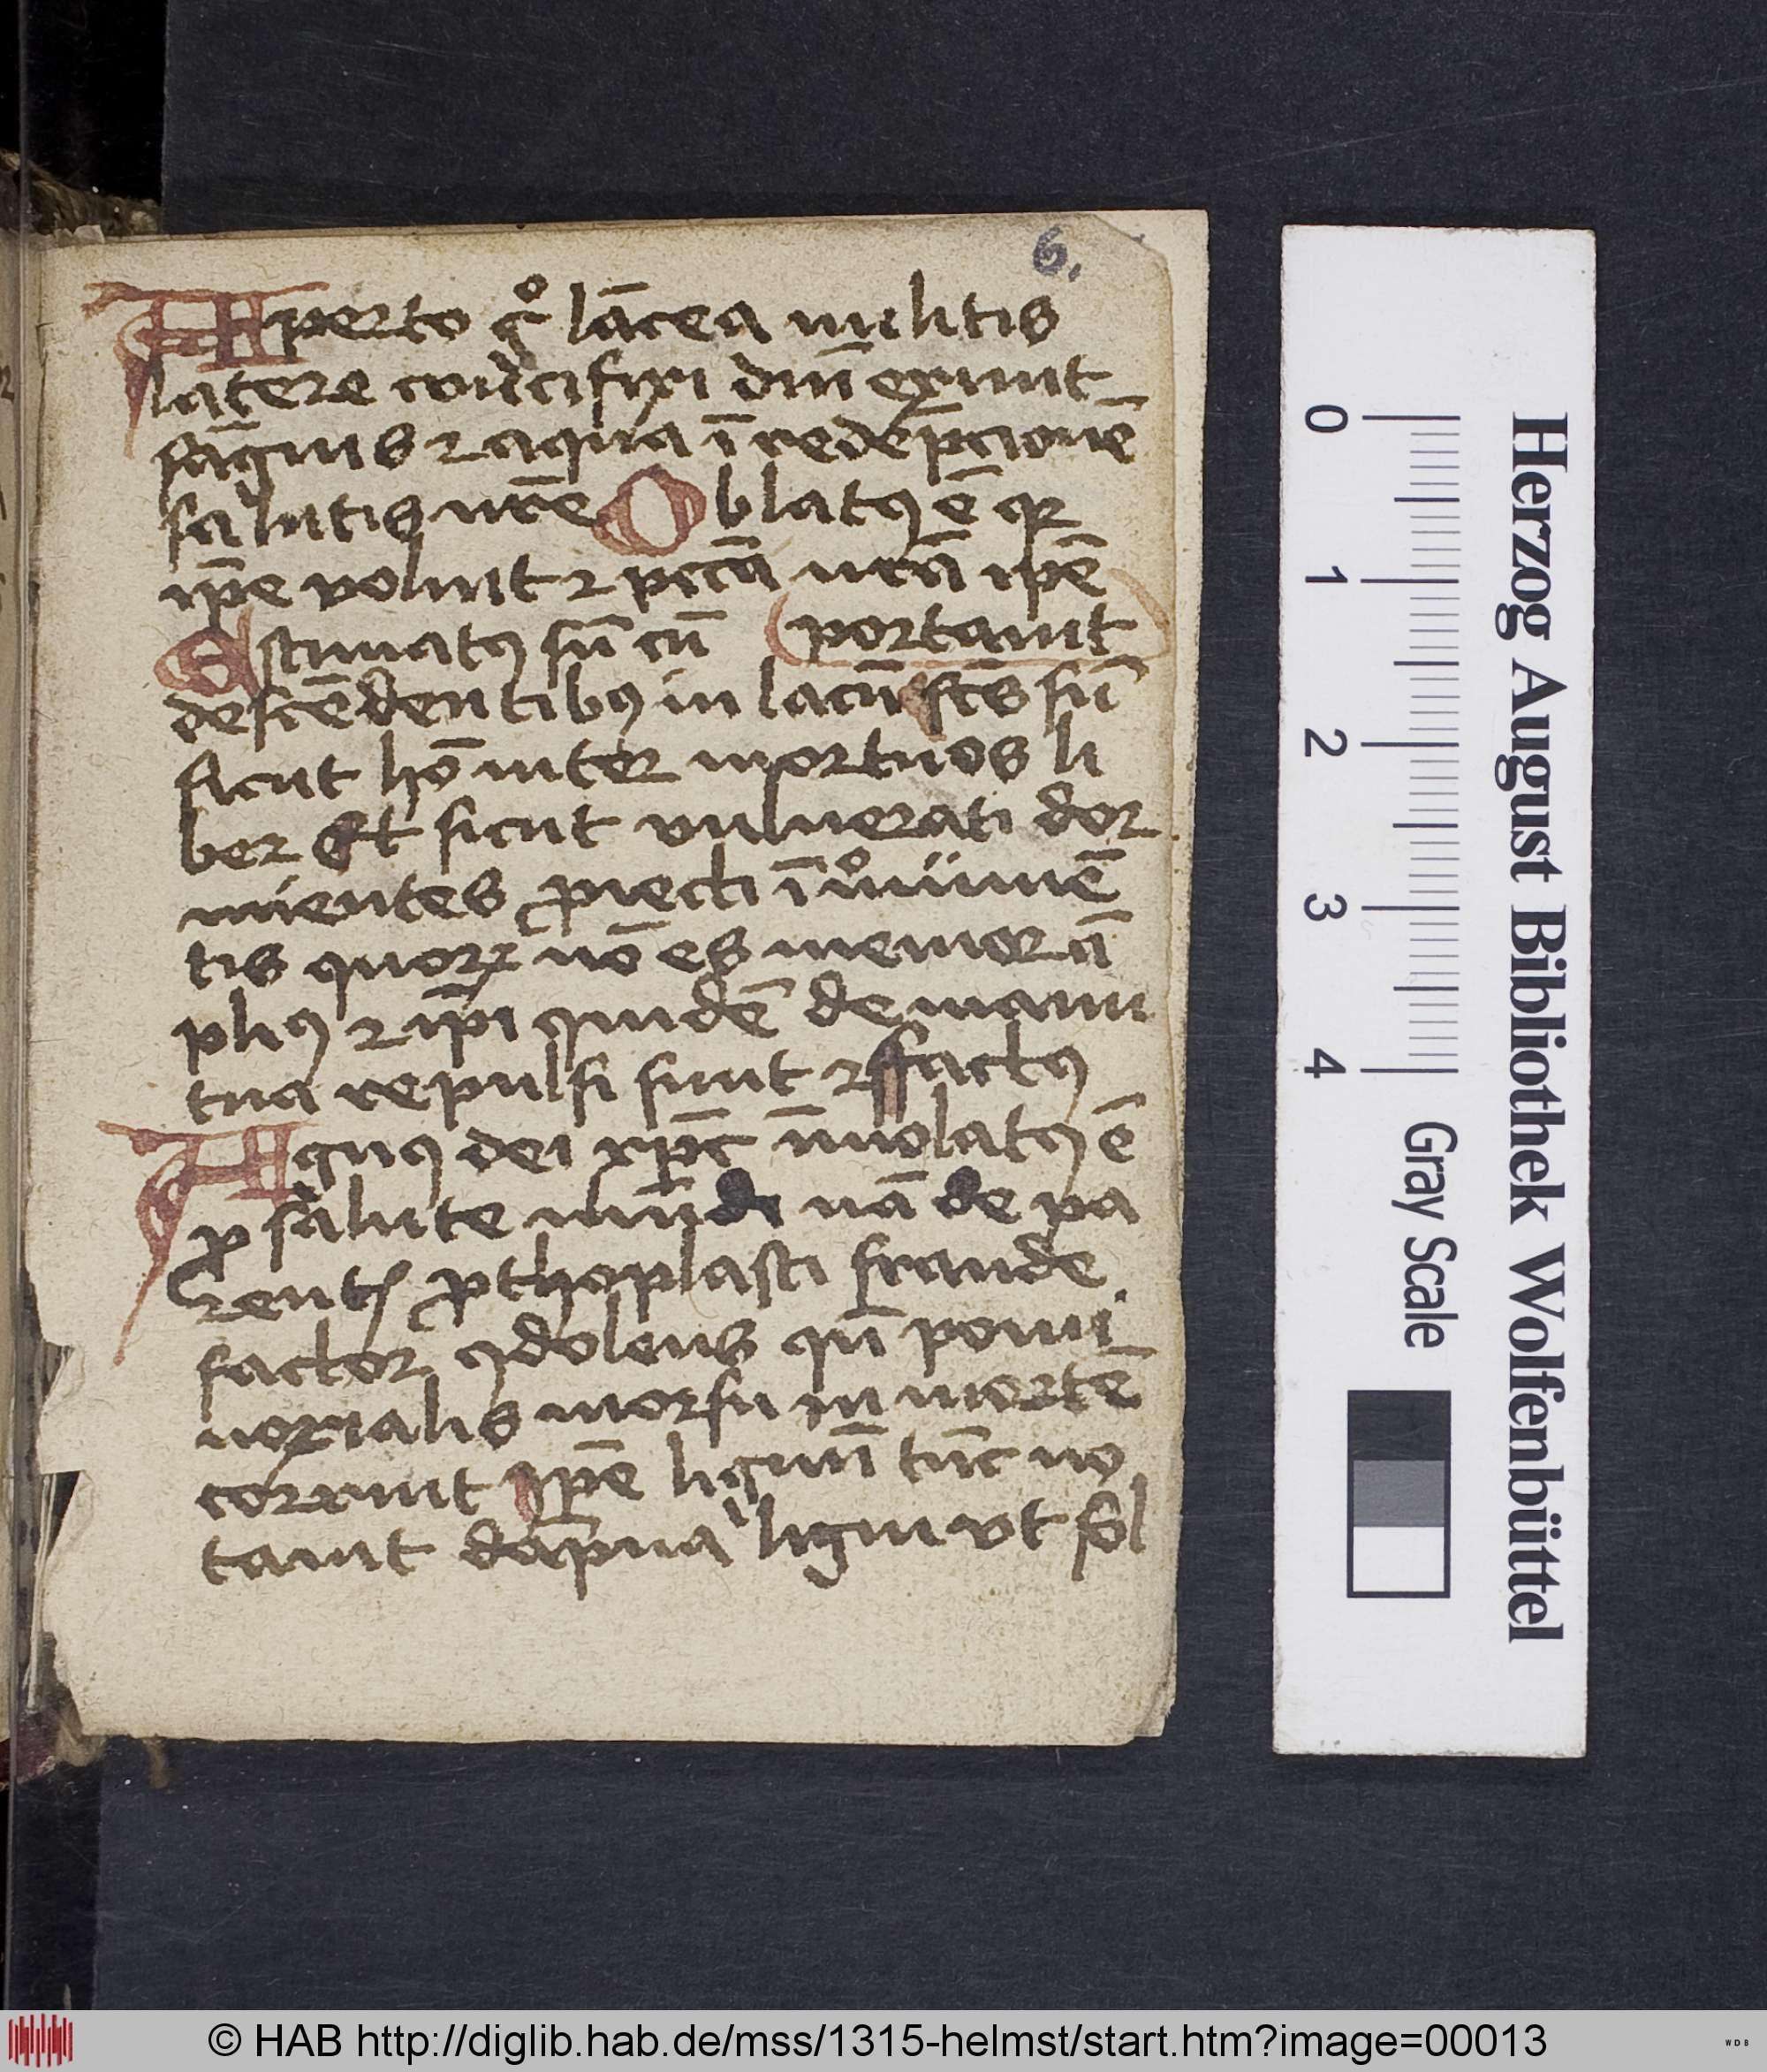 6.
Aperto gͦ lācea militis
latere crucifixi dm̄ exiuit
sāguis ⁊ aqua ī redēpcionē
salutis nr̄e Oblatꝰ ē qr
ip̄e voluit ⁊ pccā nr̄a ip̄e
Estimatꝰ sū cū portauit
descēdentibꝰ in lacū fcs̄ sū
sicut hō inter mortuos li
ber Et sicut vulnerati dor
mientes ꝓiecti ī moͦnimē
tis quoꝝ nō es memor ā
pliꝰ ⁊ ip̄i quidē de manu
tua repulsi sunt ⁊ factꝰ
Agnꝰ dei xp̄c īmolatꝰ ē
ꝓ salute mūdi nā de pa
rentꝭ ꝓthoplasti fraude
factor ꝯdolens qn̄ pomi
noxialis morsu in mortē
corruit ip̄e lignū tūc no
tauit dāpna ligni vt sol
0 1 2 3 4 Gray Scale
Herzog August Bibliothek Wolfenbüttel
© HAB http://diglib.hab.de/mss/1315-helmst/start.htm?image=00013
WDB